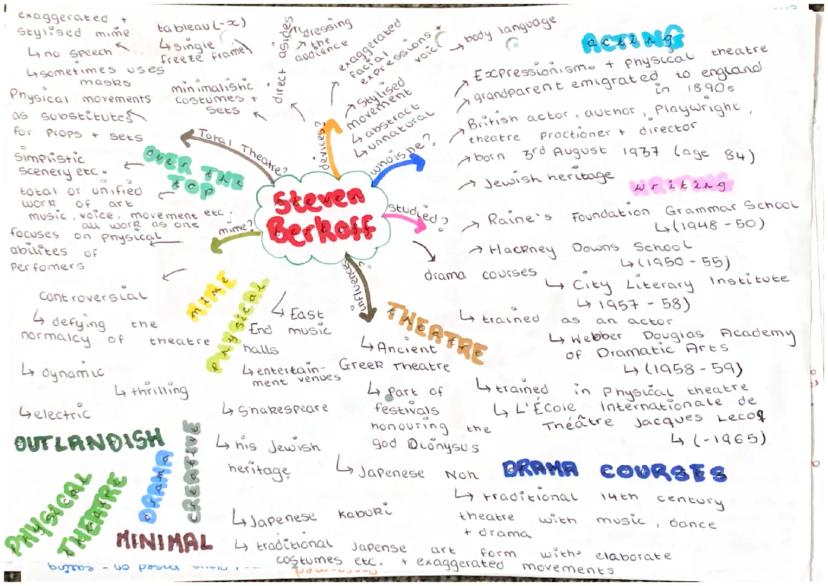 exaggerated +
stylised mime
↳ no speech
↳ sometimes uses
masks
tableau(-x)
↳ single
freeze frame
Physical movements
as substitutes
for props + sets
minimalistic
costumes +
sets
direct asides
addressing
the
audience
exaggerated
facial
expressions +
voice
stylised
movement
↳ abstract
↳ unnatural
body language
ACTING
Expressionism + physical theatre
grandparent emigrated to england
in 1890s
British actor, author, playwright,
theatre proctioner + director
born 3rd August 1937 (age 84)
Jewish heritage
writing
Total Theatre?
devices?
who is he?
studied?
mime?
influences?
Steven
Berkoff
OVER THE
TOP
Simplistic
scenery etc.
total or unified
work of art
music, voice, movement etc.
all work as one
focuses on physical
abilities of
Perfomers
Raine's Foundation Grammar School
↳ (1948-50)
Hackney Downs School
↳ (1950-55)
drama courses
↳ City Literary Institute
↳ 1957-58)
↳ trained as an actor
↳ Webber Douglas Academy
of Dramatic Arts
↳ (1958-59)
↳ trained in Physical theatre
↳ L'École Internationale de
Théâtre Jacques Lecoq
↳ (-1965)
MIME
PHYSICAL
THEATRE
controversial
↳ defying the
normalcy of theatre
↳ dynamic
↳ thrilling
↳ electric
↳ East
End music
halls
↳ entertain-
ment venues
↳ Shakespeare
↳ his Jewish
heritage
↳ Ancient
Greek Theatre
↳ part of
festivals
honouring the
god Dionysus
↳ Japenese Noh
↳ traditional 14th century
theatre with music, dance
+ drama
↳ Japenese kabuki
↳ traditional Japense art form with elaborate
costumes etc. + exaggerated movements
DRAMA COURSES
OUTLANDISH
PHYSICAL
THEATRE
DRAMA
CREATIVE
MINIMAL